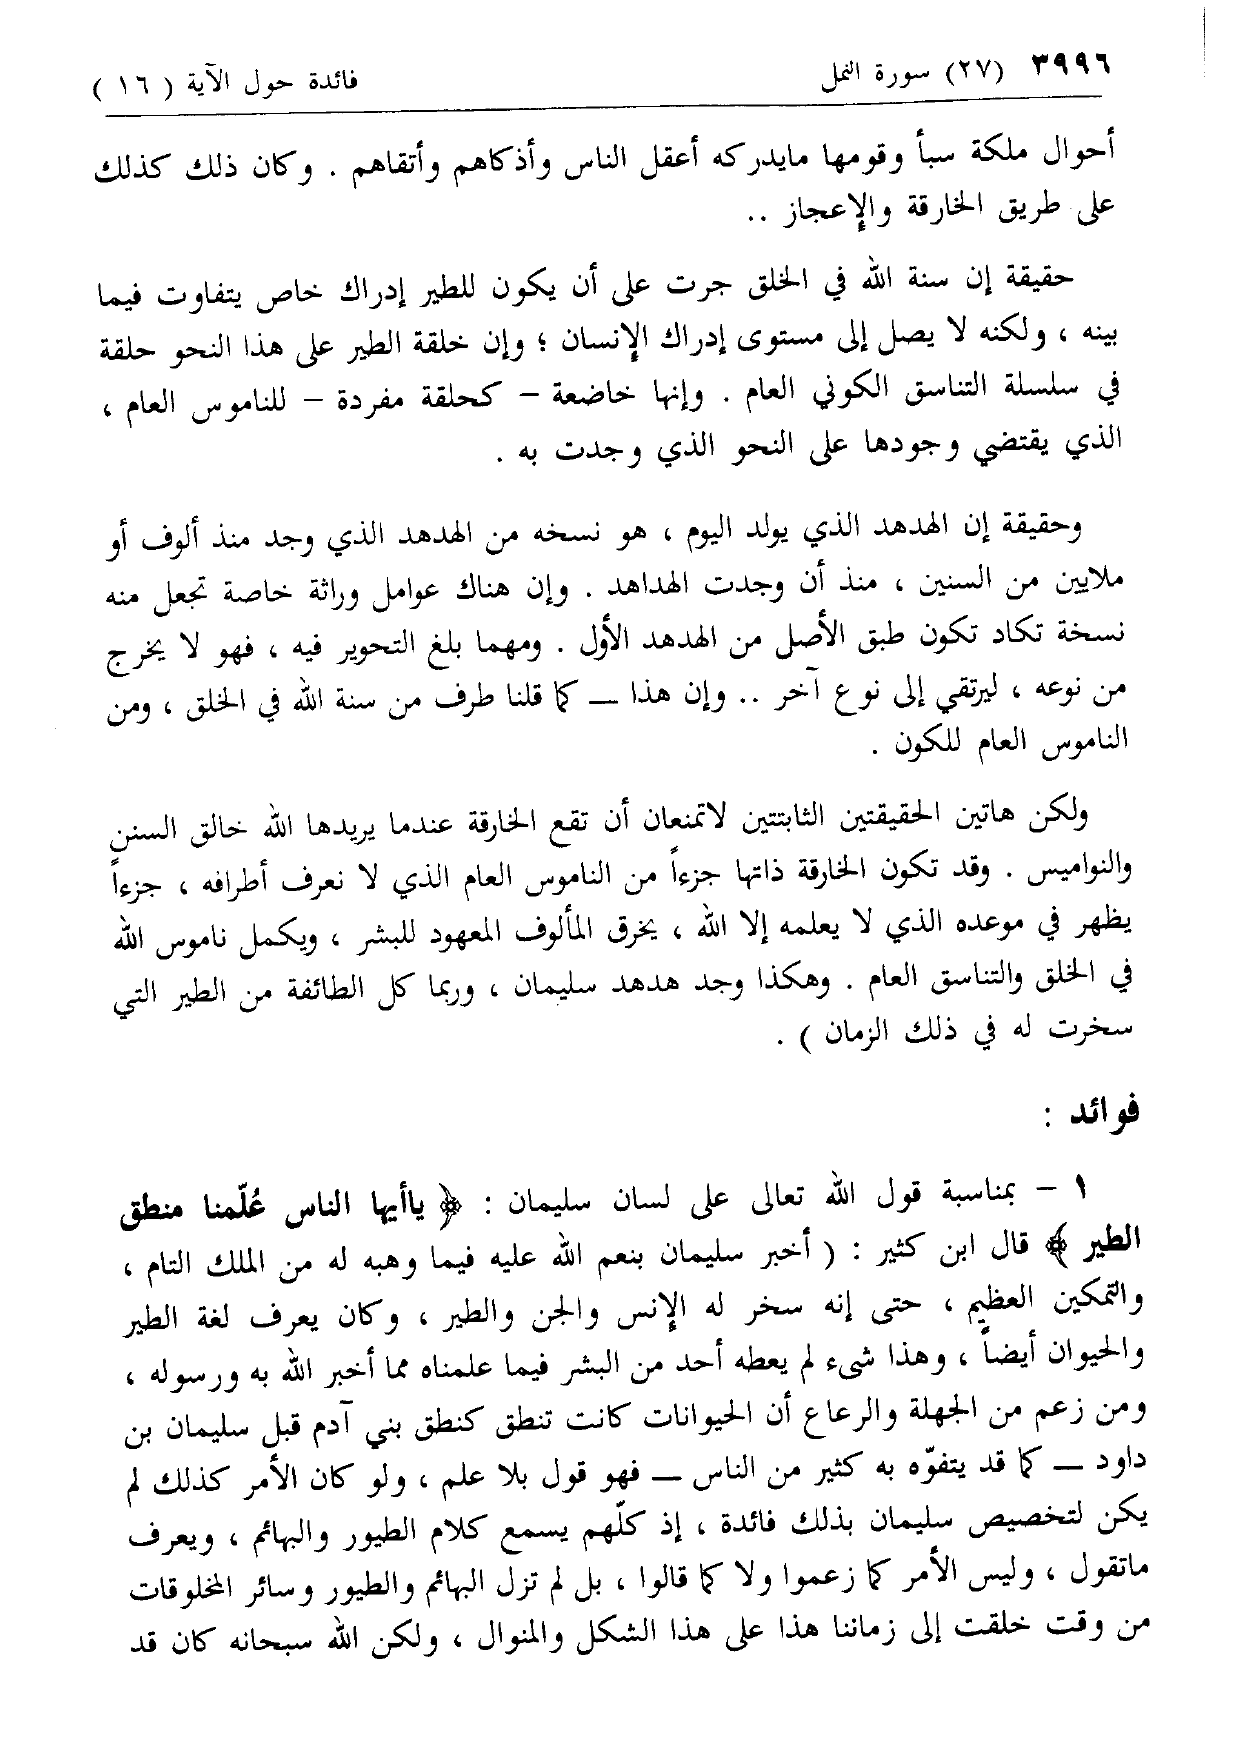 ٣٩٩٦ (٢٧) سورة النمل فائدة حول الآية ( ١٦ )
أحوال ملكة سبأ وقومها مايدركه أعقل الناس وأذكاهم وأتقاهم . وكان ذلك كذلك
على طريق الخارقة والإعجاز ..
حقيقة إن سنة الله في الخلق جرت على أن يكون للطير إدراك خاص يتفاوت فيما
بينه ، ولكنه لا يصل إلى مستوى إدراك الإنسان ؛ وإن خلقة الطير على هذا النحو حلقة
في سلسلة التناسق الكوني العام . وإنها خاضعة – كحلقة مفردة – للناموس العام ،
الذي يقتضي وجودها على النحو الذي وجدت به .
وحقيقة إن الهدهد الذي يولد اليوم ، هو نسخه من الهدهد الذي وجد منذ ألوف أو
ملايين من السنين ، منذ أن وجدت الهداهد . وإن هناك عوامل وراثة خاصة تجعل منه
نسخة تكاد تكون طبق الأصل من الهدهد الأول . ومهما بلغ التحوير فيه ، فهو لا يخرج
من نوعه ، ليرتقي إلى نوع آخر .. وإن هذا ــ كما قلنا طرف من سنة الله في الخلق ، ومن
الناموس العام للكون .
ولكن هاتين الحقيقتين الثابتتين لاتمنعان أن تقع الخارقة عندما يريدها الله خالق السنن
والنواميس . وقد تكون الخارقة ذاتها جزءاً من الناموس العام الذي لا نعرف أطرافه ، جزءاً
يظهر في موعده الذي لا يعلمه إلا الله ، يخرق المألوف المعهود للبشر ، ويكمل ناموس الله
في الخلق والتناسق العام . وهكذا وجد هدهد سليمان ، وربما كل الطائفة من الطير التي
سخرت له في ذلك الزمان ) .
فوائد :
١ – بمناسبة قول الله تعالى على لسان سليمان : ﴿ ياأيها الناس عُلّمنا منطق
الطير ﴾ قال ابن كثير : ( أخبر سليمان بنعم الله عليه فيما وهبه له من الملك التام ،
والتمكين العظيم ، حتى إنه سخر له الإنس والجن والطير ، وكان يعرف لغة الطير
والحيوان أيضاً ، وهذا شيء لم يعطه أحد من البشر فيما علمناه مما أخبر الله به ورسوله ،
ومن زعم من الجهلة والرعاع أن الحيوانات كانت تنطق كنطق بني آدم قبل سليمان بن
داود ــ كما قد يتفوّه به كثير من الناس ــ فهو قول بلا علم ، ولو كان الأمر كذلك لم
يكن لتخصيص سليمان بذلك فائدة ، إذ كلّهم يسمع كلام الطيور والبهائم ، ويعرف
ماتقول ، وليس الأمر كما زعموا ولا كما قالوا ، بل لم تزل البهائم والطيور وسائر المخلوقات
من وقت خلقت إلى زماننا هذا على هذا الشكل والمنوال ، ولكن الله سبحانه كان قد